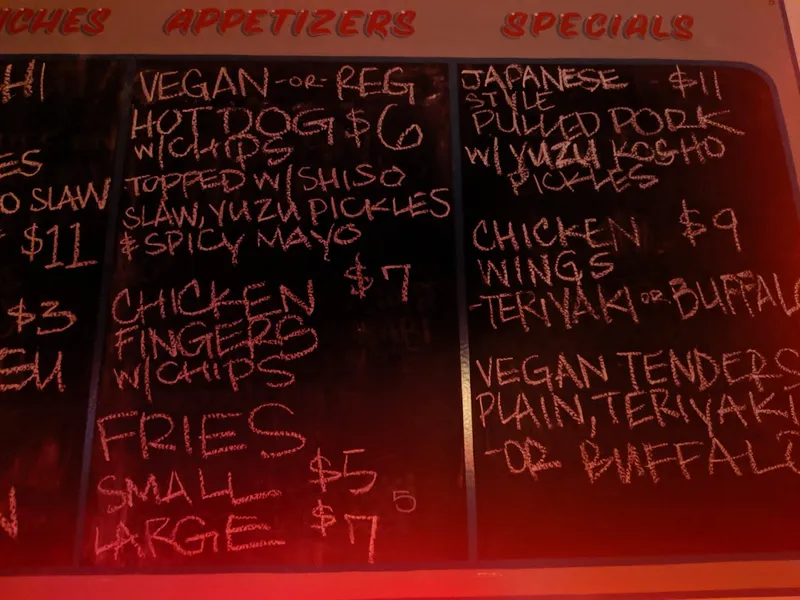 APPETIZERS
SPECIALS
ES
O SLAW
$11
$3
VEGAN -OR- REG
HOT DOG $6
W/CHIPS
TOPPED W/SHISO
SLAW, YUZU PICKLES
& SPICY MAYO
CHICKEN $7
FINGERS
W/CHIPS
FRIES
SMALL $5
LARGE $7
5
JAPANESE $11
STYLE
PULLED PORK
W/ YUZU KOSHO
PICKLES
CHICKEN $9
WINGS
-TERIYAKI OR BUFFALO
VEGAN TENDERS
PLAIN, TERIYAKI
-OR BUFFALO